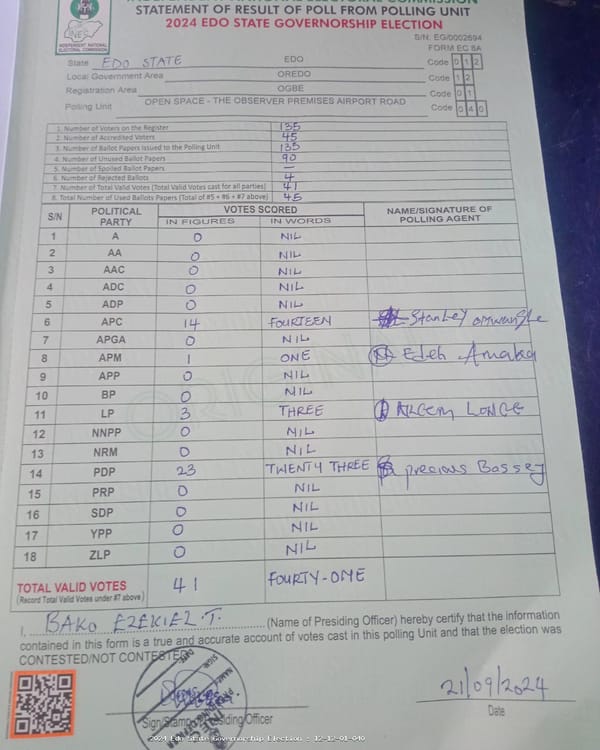 STATEMENT OF RESULT OF POLL FROM POLLING UNIT
2024 EDO STATE GOVERNORSHIP ELECTION
S/N: EG/0002694
FORM EC 8A
INEC
INDEPENDENT NATIONAL ELECTORAL COMMISSION
State EDO STATE EDO Code 0 1 2
Local Government Area OREDO Code 1 2
Registration Area OGBE Code 0 1
Polling Unit OPEN SPACE - THE OBSERVER PREMISES AIRPORT ROAD Code 0 4 0
1. Number of Voters on the Register 135
2. Number of Accredited Voters 45
3. Number of Ballot Papers Issued to the Polling Unit 135
4. Number of Unused Ballot Papers 90
5. Number of Spoiled Ballot Papers —
6. Number of Rejected Ballots 4
7. Number of Total Valid Votes (Total Valid Votes cast for all parties) 41
8. Total Number of Used Ballots Papers (Total of #5 + #6 + #7 above) 45
S/N POLITICAL PARTY VOTES SCORED NAME/SIGNATURE OF POLLING AGENT
IN FIGURES IN WORDS
1 A 0 NIL
2 AA 0 NIL
3 AAC 0 NIL
4 ADC 0 NIL
5 ADP 0 NIL
6 APC 14 FOURTEEN Stanley
7 APGA 0 NIL
8 APM 1 ONE Edeh Amaka
9 APP 0 NIL
10 BP 0 NIL
11 LP 3 THREE
12 NNPP 0 NIL
13 NRM 0 NIL
14 PDP 23 TWENTY THREE precious Bassey
15 PRP 0 NIL
16 SDP 0 NIL
17 YPP 0 NIL
18 ZLP 0 NIL
TOTAL VALID VOTES 41 FOURTY-ONE
(Record Total Valid Votes under #7 above)
I, BAKO EZEKIEL .T. (Name of Presiding Officer) hereby certify that the information
contained in this form is a true and accurate account of votes cast in this polling Unit and that the election was
CONTESTED/NOT CONTESTED
21/09/2024
Sign/Stamp Presiding Officer
Date
2024 Edo State Governorship Election : 12-12-01-040